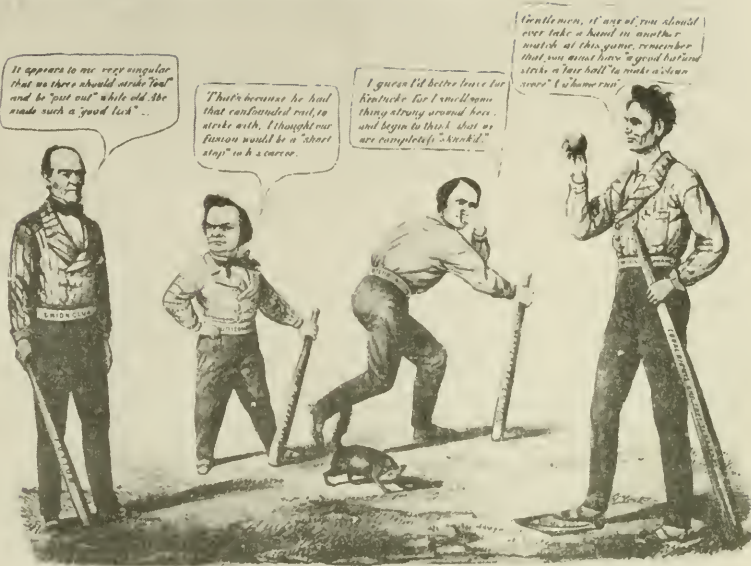 It appears to me very singular
that we three should strike "foul"
and be "put out" while old Abe
made such a "good lick"
That's because he had
that confounded rail, to
strike with, I thought our
fusion would be a "short
stop" to his career.
I guess I'd better leave for
Kentucky, for I smell some
thing strong around here,
and begin to think, that we
are completely "skunk'd."
Gentlemen, if any of you should
ever take a hand in another
match at this game, remember
that you must have "a good bat" and
strike a "fair ball" to make a "clean
score" & a "home run"
UNION CLUB
EQUAL RIGHTS AND FREE